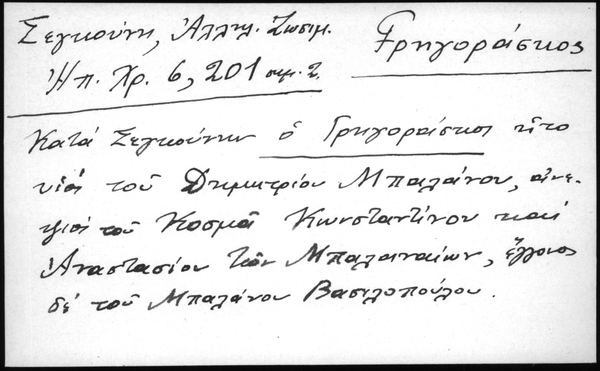 Σεγκούνη, Ἀλληλ. Ζωσιμ.
Γρηγοράσκος
Ἠπ. Χρ. 6, 201 σημ. 2.
Κατά Σεγκούνην ὁ Γρηγοράσκος ἦτο
υἱός τοῦ Δημητρίου Μπαλάνου, ἀνε-
ψιός τοῦ Κοσμᾶ Κωνσταντίνου καί
Ἀναστασίου τῶν Μπαλαναίων, ἔγγονος
δέ τοῦ Μπαλάνου Βασιλοπούλου.